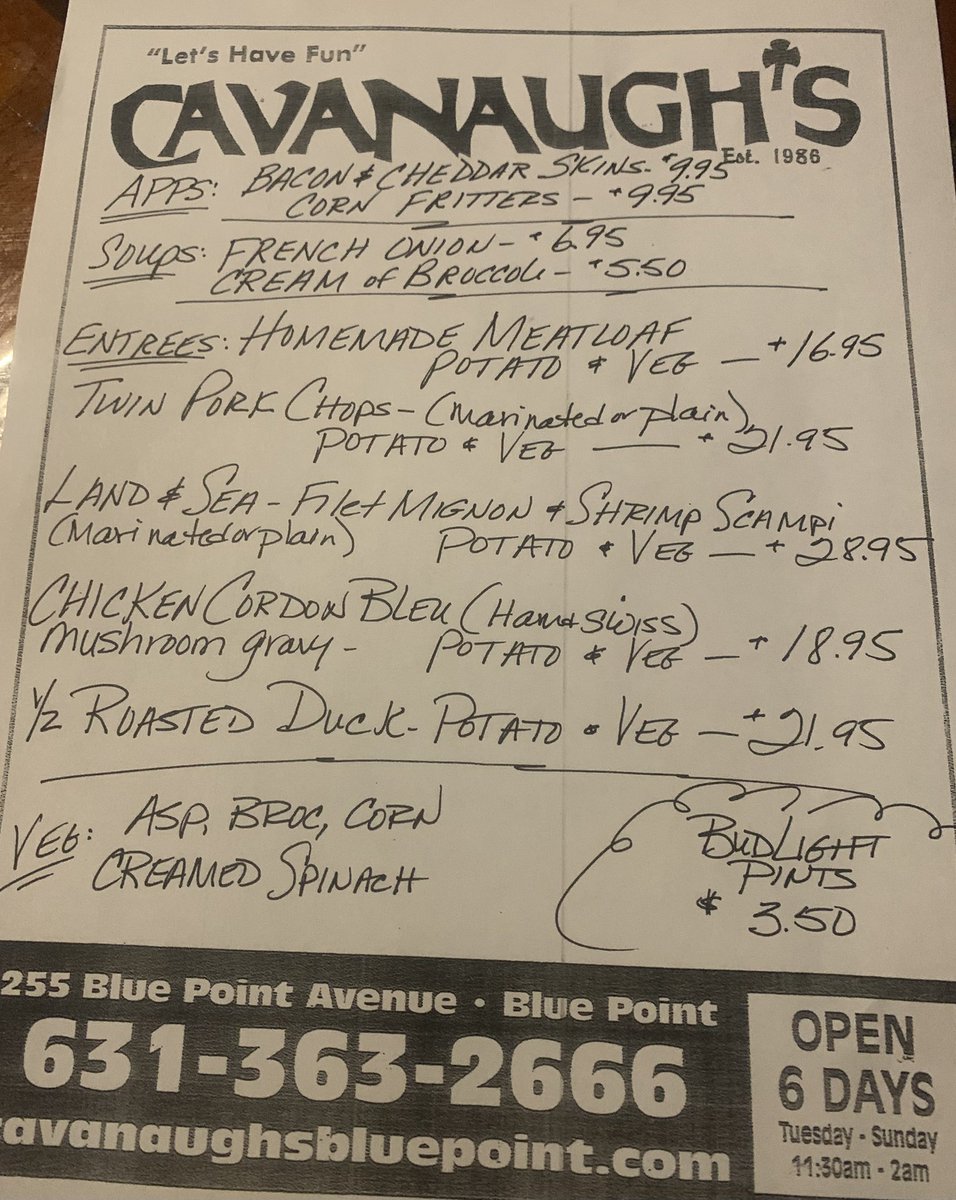 "Let's Have Fun"
CAVANAUGH'S
Est. 1986
APPS: BACON & CHEDDAR SKINS - $9.95
CORN FRITTERS - $9.95
SOUPS: FRENCH ONION - $6.95
CREAM of BROCCOLI - $5.50
ENTREES: HOMEMADE MEATLOAF
POTATO & VEG — $16.95
TWIN PORK CHOPS - (Marinated or plain)
POTATO & VEG — $21.95
LAND & SEA - FILET MIGNON & SHRIMP SCAMPI
(Marinated or plain) POTATO & VEG — $28.95
CHICKEN CORDON BLEU (Ham & Swiss)
mushroom gravy - POTATO & VEG — $18.95
1/2 ROASTED DUCK - POTATO & VEG — $21.95
VEG: ASP, BROC, CORN
CREAMED SPINACH
BUD LIGHT
PINTS
$ 3.50
255 Blue Point Avenue • Blue Point
631-363-2666
cavanaughsbluepoint.com
OPEN
6 DAYS
Tuesday - Sunday
11:30am - 2am